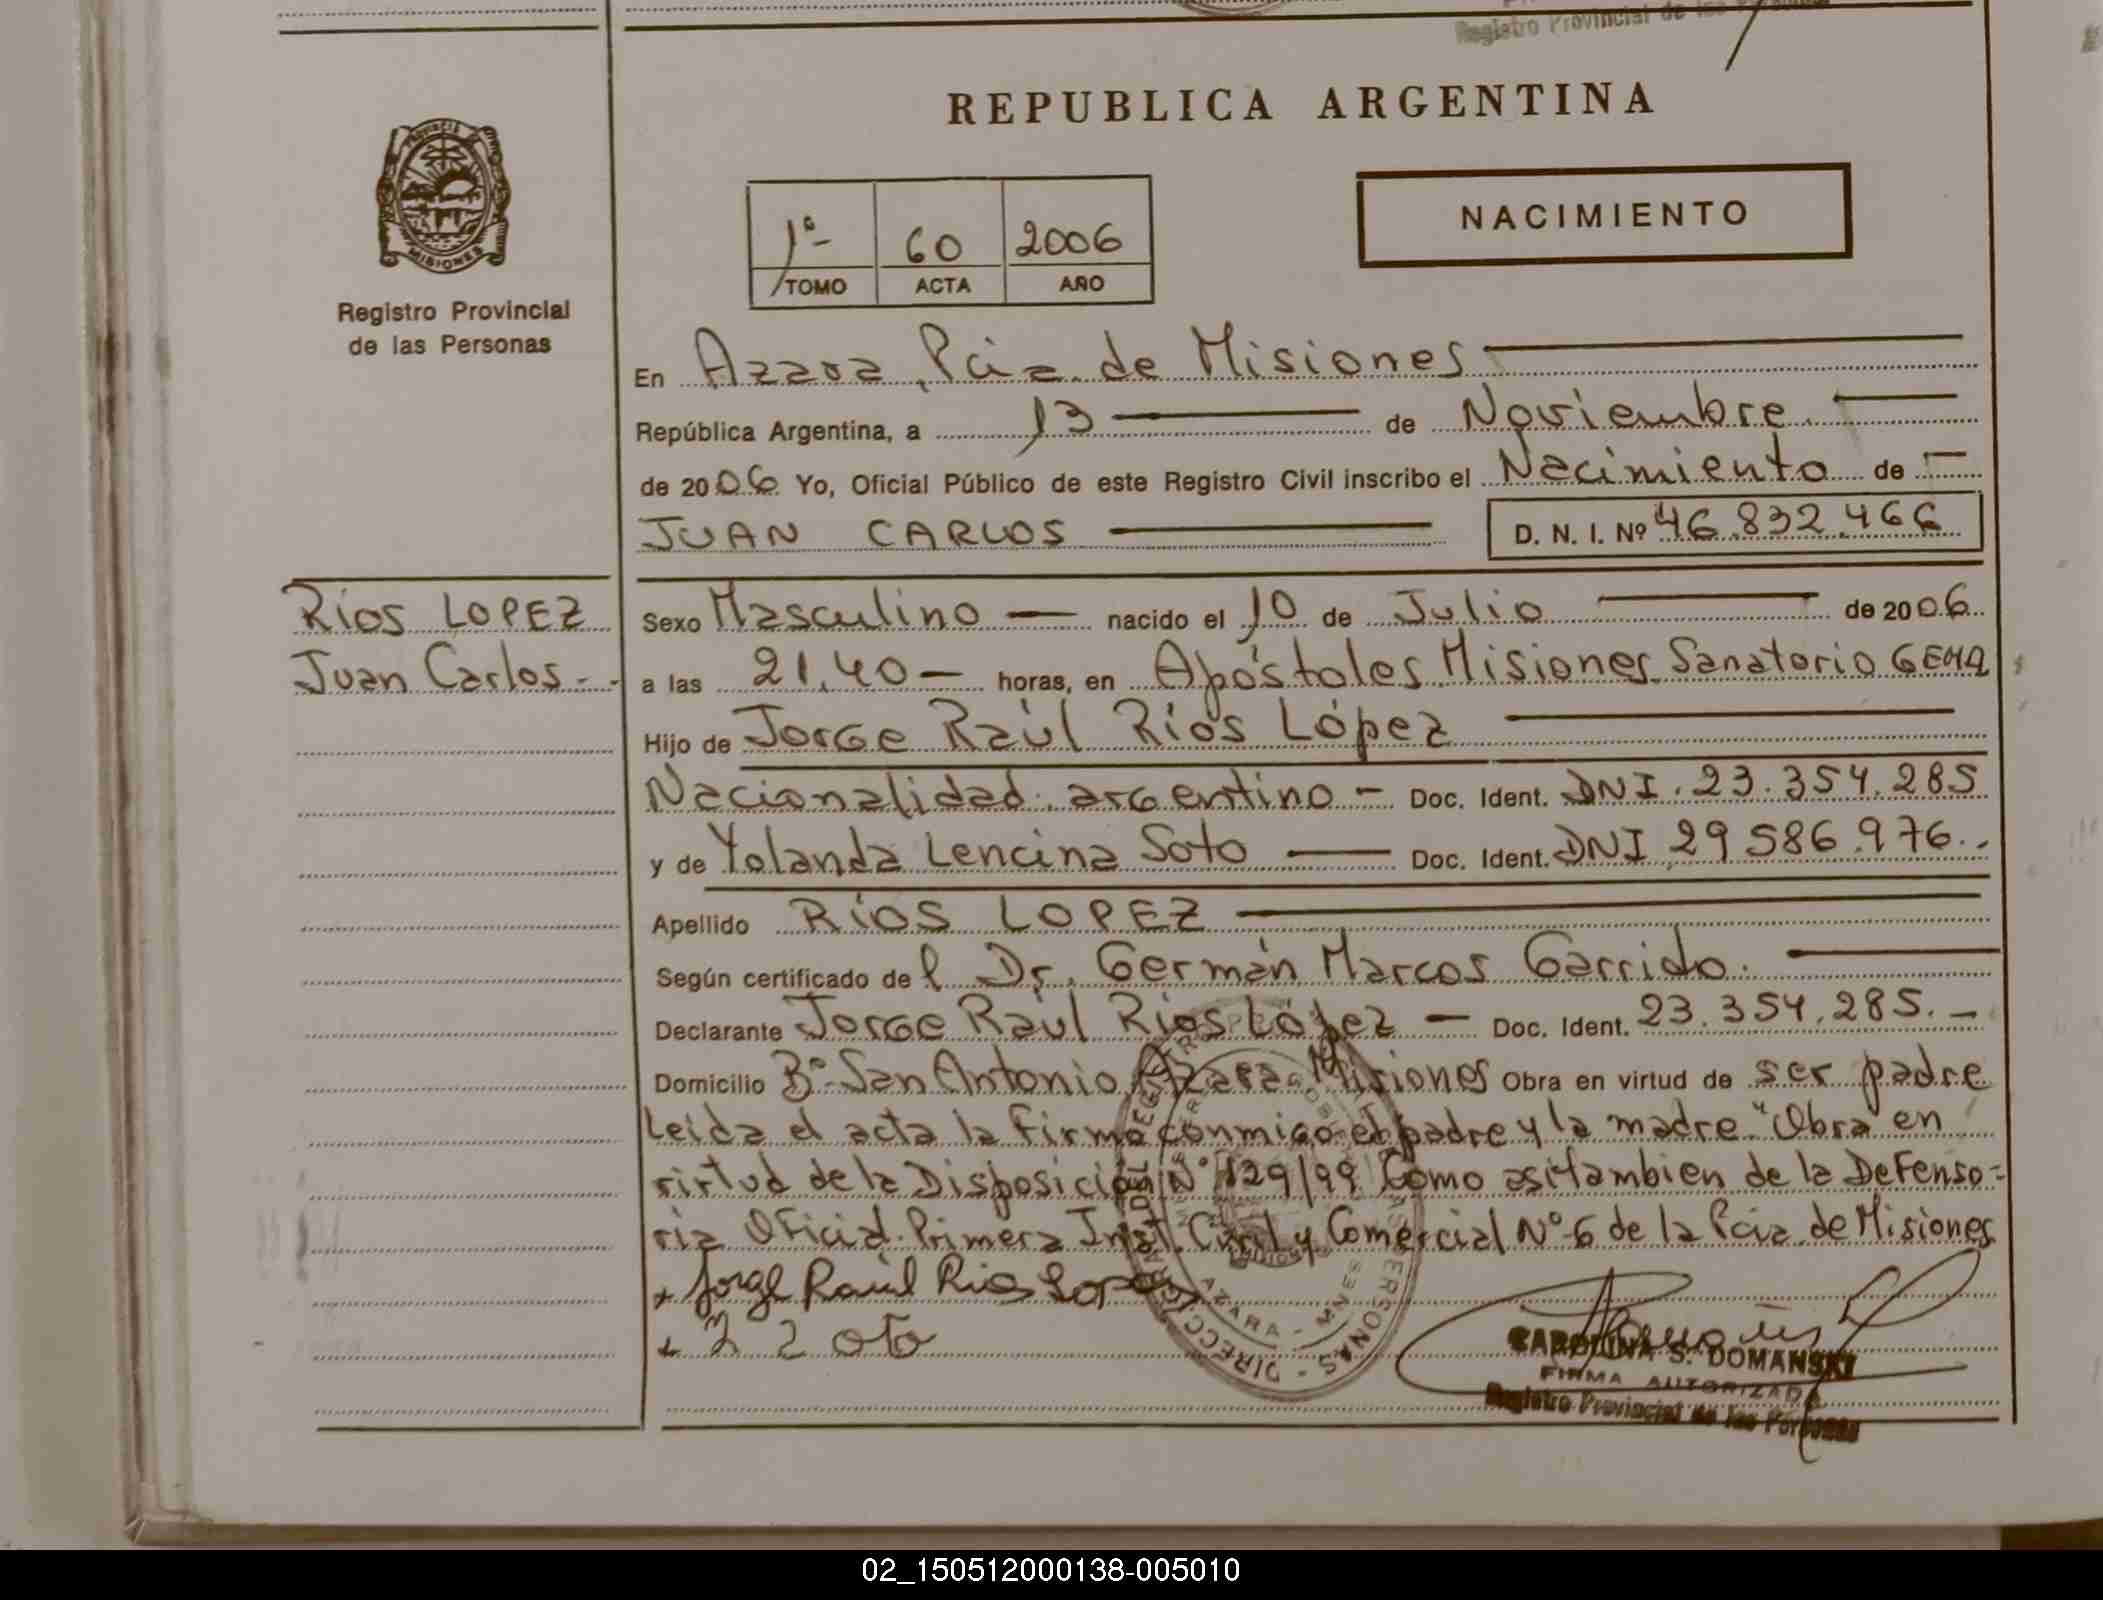 Registro Provincial de las Personas
REPUBLICA ARGENTINA
PROVINCIA
MISIONES
Registro Provincial
de las Personas
1º- 60 2006
TOMO ACTA AÑO
NACIMIENTO
En Azara, Pcia. de Misiones
República Argentina, a 13 de Noviembre
de 2006 Yo, Oficial Público de este Registro Civil inscribo el Nacimiento de
JUAN CARLOS D. N. I. Nº 46.832.466
Ríos LOPEZ
Juan Carlos.-
Sexo Masculino nacido el 10 de Julio de 2006
a las 21,40 horas, en Apóstoles Misiones Sanatorio GEMA
Hijo de Jorge Raúl Ríos López
Nacionalidad argentino - Doc. Ident. DNI. 23.354.285
y de Yolanda Lencina Soto Doc. Ident. DNI 29586.976.-
Apellido RÍOS LOPEZ
Según certificado del Dr. Germán Marcos Garrido.
Declarante Jorge Raúl Ríos López - Doc. Ident. 23.354.285.-
Domicilio Bº San Antonio Azara Misiones Obra en virtud de ser padre
Leida el acta la firma conmigo el padre y la madre "Obra en
virtud de la Disposición Nº 129/99 Como asitambien de la Defenso-
ria Oficial Primera Inst. Civil y Comercial Nº 6 de la Pcia. de Misiones
+ Jorge Raúl Rios Lopez
AZARA - MNES
DIRECC PERSONAS
CAROLINA S. DOMANSKI
FIRMA AUTORIZADA
Registro Provincial de las Personas
02_150512000138-005010